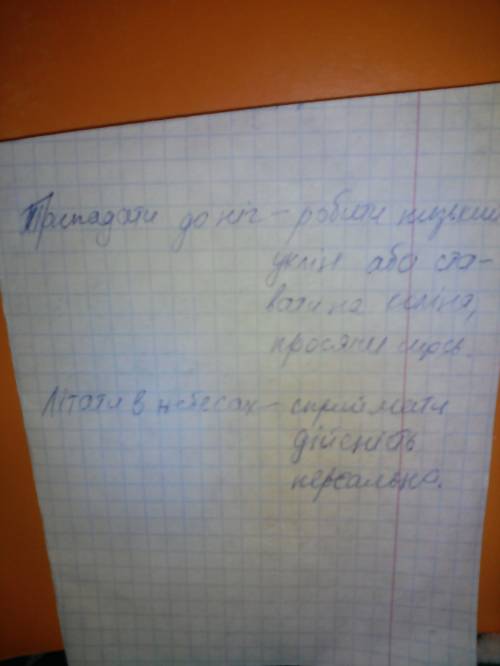 Припадати до ніг – робити низький
уклін або ста-
вати на коліна,
просячи щось.
Літати в небесах – сприймати
дійсність
нереально.